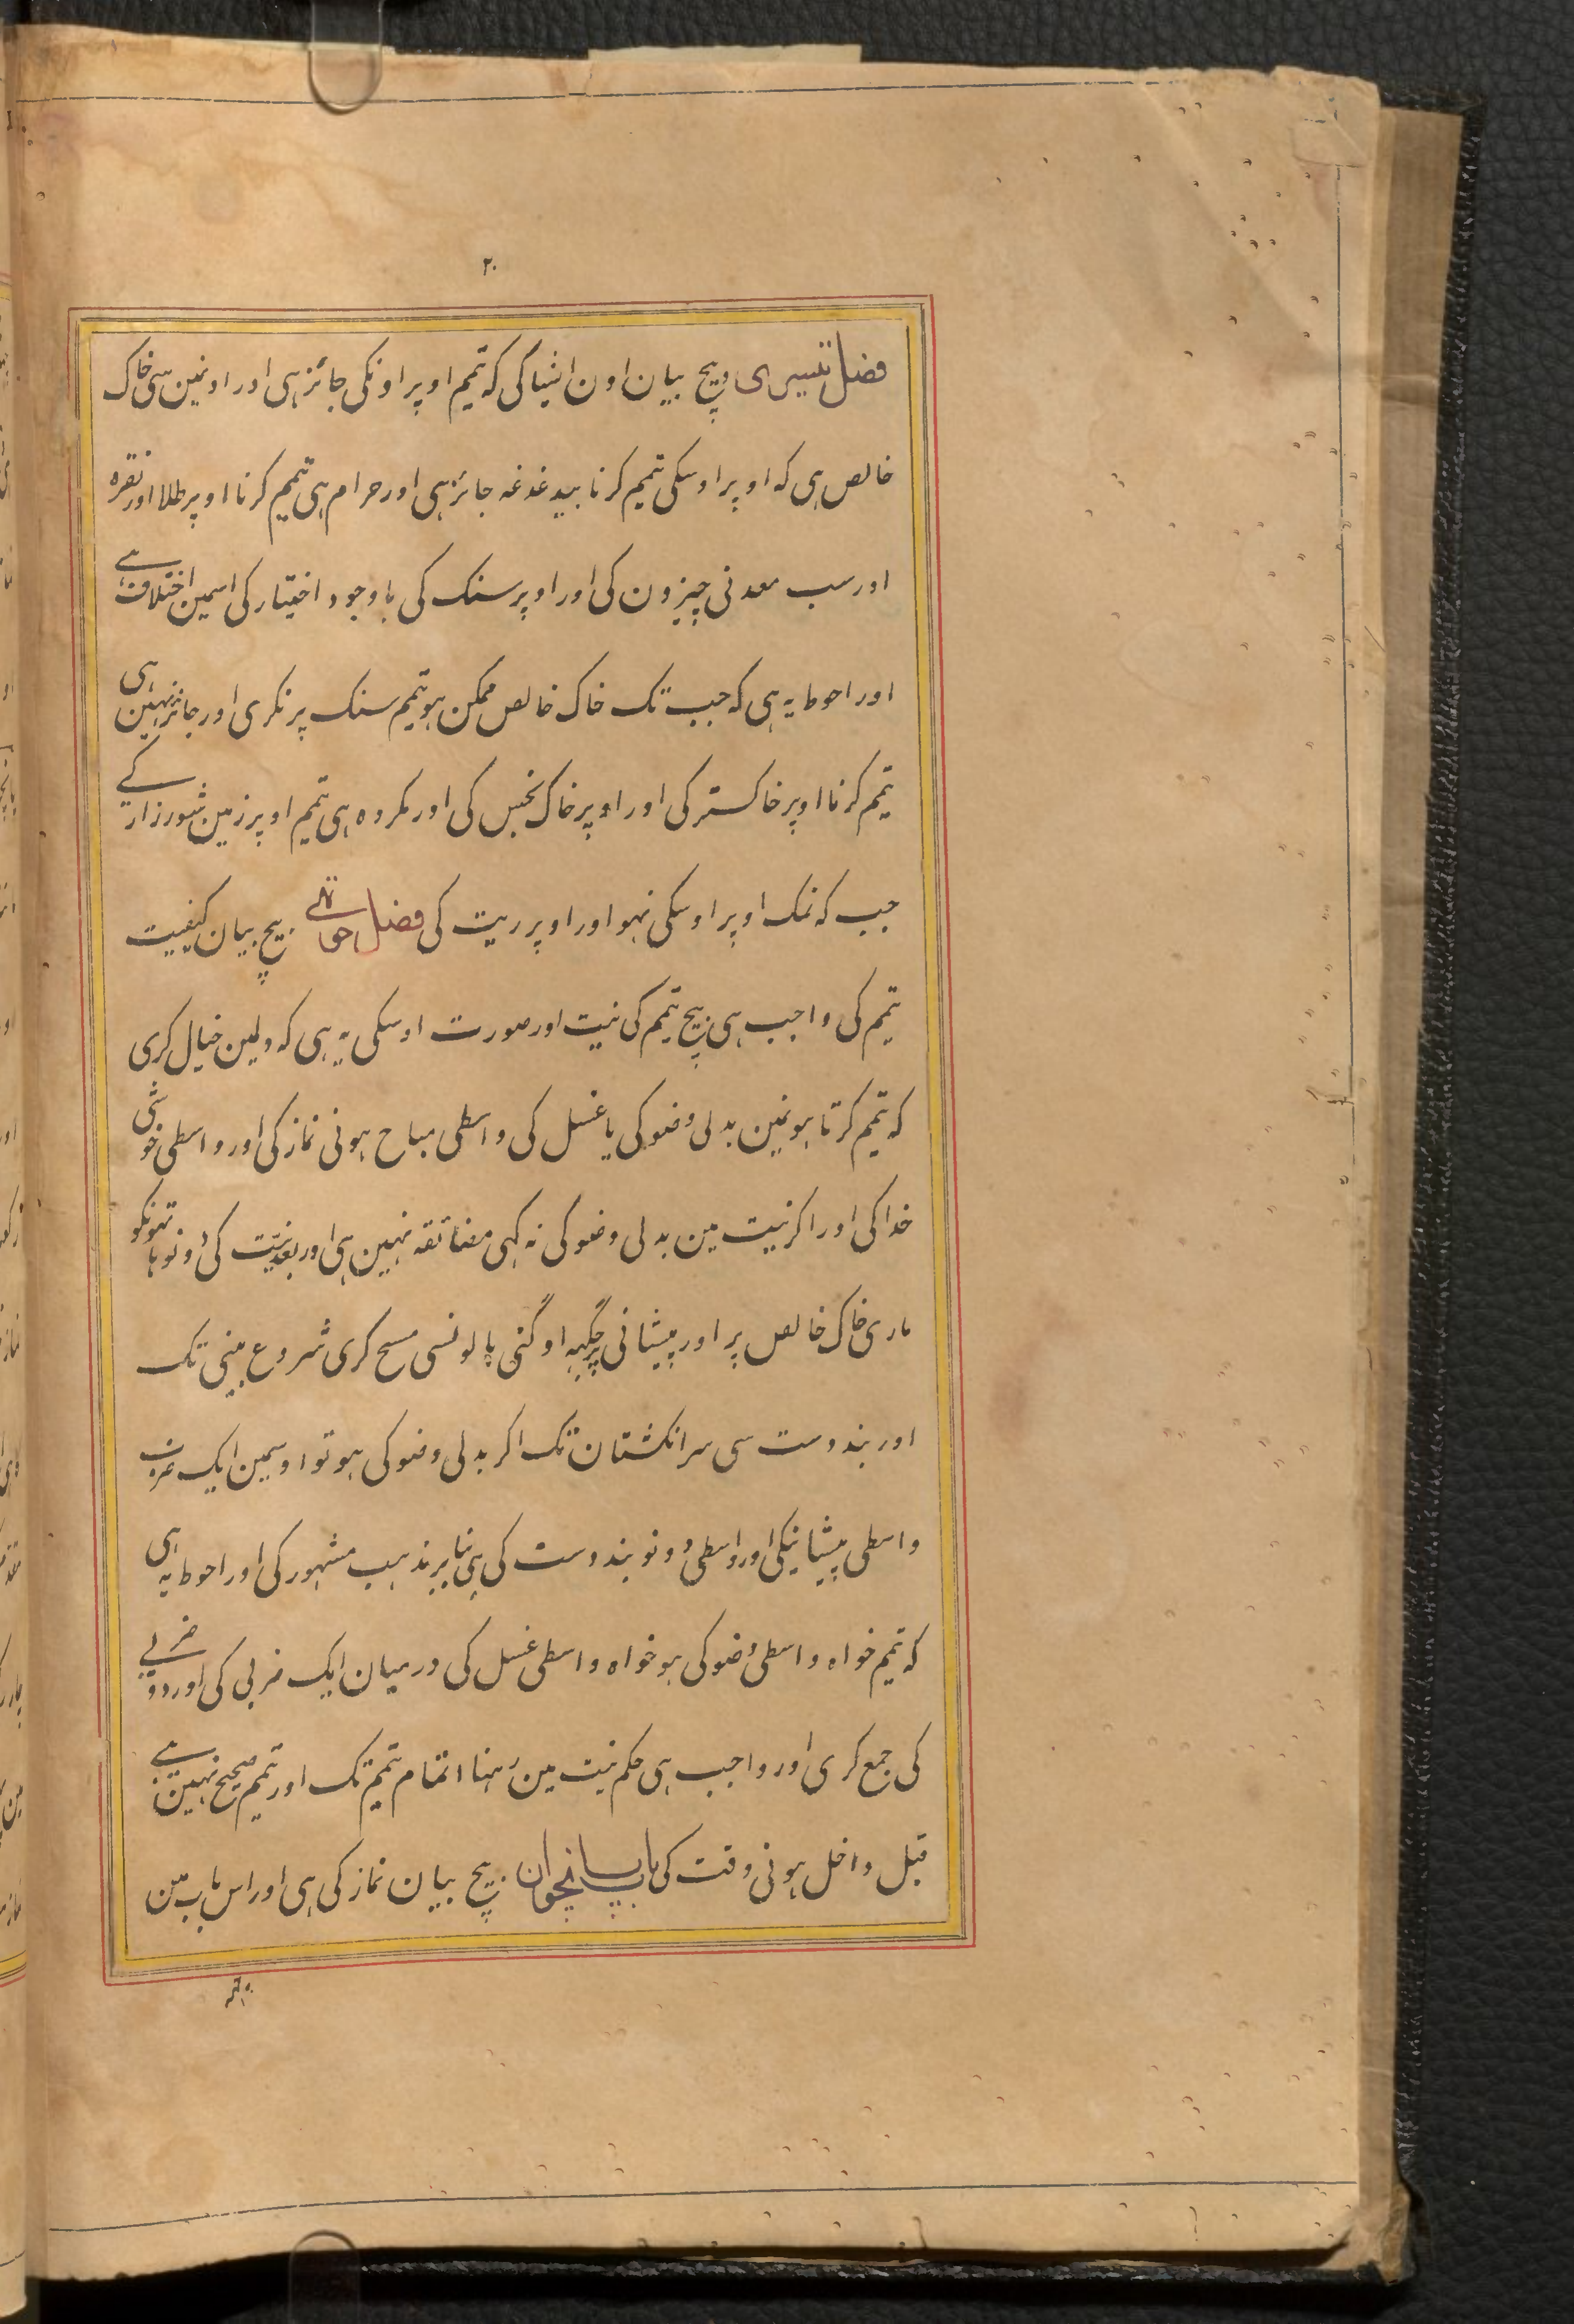 ۲۰
فصل تیسری بیچ بیان اون اشیا کی که تیمم اوپر اونکی جائز ہی اور اونمین سی خاک
خالص ہی که اوپر اوسکی تیمم کرنا بیدغدغه جائز ہی اور حرام ہی تیمم کرنا اوپر طلا اور نقره
اور سب معدنی چیزون کی اور اوپر سنک کی باوجود اختیار کی اسمین اختلاف ہے
اور احوط یه ہی که جب تک خاک خالص ممکن ہو تیمم سنک پر نکری اور جائز نہین ہی
تیمم کرنا اوپر خاکستر کی اور اوپر خاک نجس کی اور مکروه ہی تیمم اوپر زمین شورزار کے
جب که نمک اوپر اوسکی نہو اور اوپر ریت کی فصل چوتھے بیچ بیان کیفیت
تیمم کی واجب ہی بیچ تیمم کی نیت اور صورت اوسکی یه ہی که دلمین خیال کری
که تیمم کرتا ہونمین بدلی وضو کی یا غسل کی واسطی مباح ہونی نماز کی اور واسطی خوشی
خدا کی اور اکر نیت مین بدلی وضو کی نه کہی مضائقه نہین ہی اور بعد نیّت کی دونو ہاتہونکو
ماری خاک خالص پر اور پیشانی پر جگہه اوگنی بالونسی مسح کری شروع بینی تک
اور بند دست سی سر انکشتان تک اکر بدلی وضو کی ہو تو اوسمین ایک ضرب
واسطی پیشانیکی اور واسطی دونو بند دست کی ہی بنابر مذہب مشہور کی اور احوط یه ہی
که تیمم خواه واسطی وضو کی ہو خواه واسطی غسل کی درمیان ایک ضربی کی اور دو ضربے
کی جمع کری اور واجب ہی حکم نیت مین رہنا اتمام تیمم تک اور تیمم صحیح نہین ہے
قبل داخل ہونی وقت کی باب پانچوان بیچ بیان نماز کی ہی اور اس باب مین